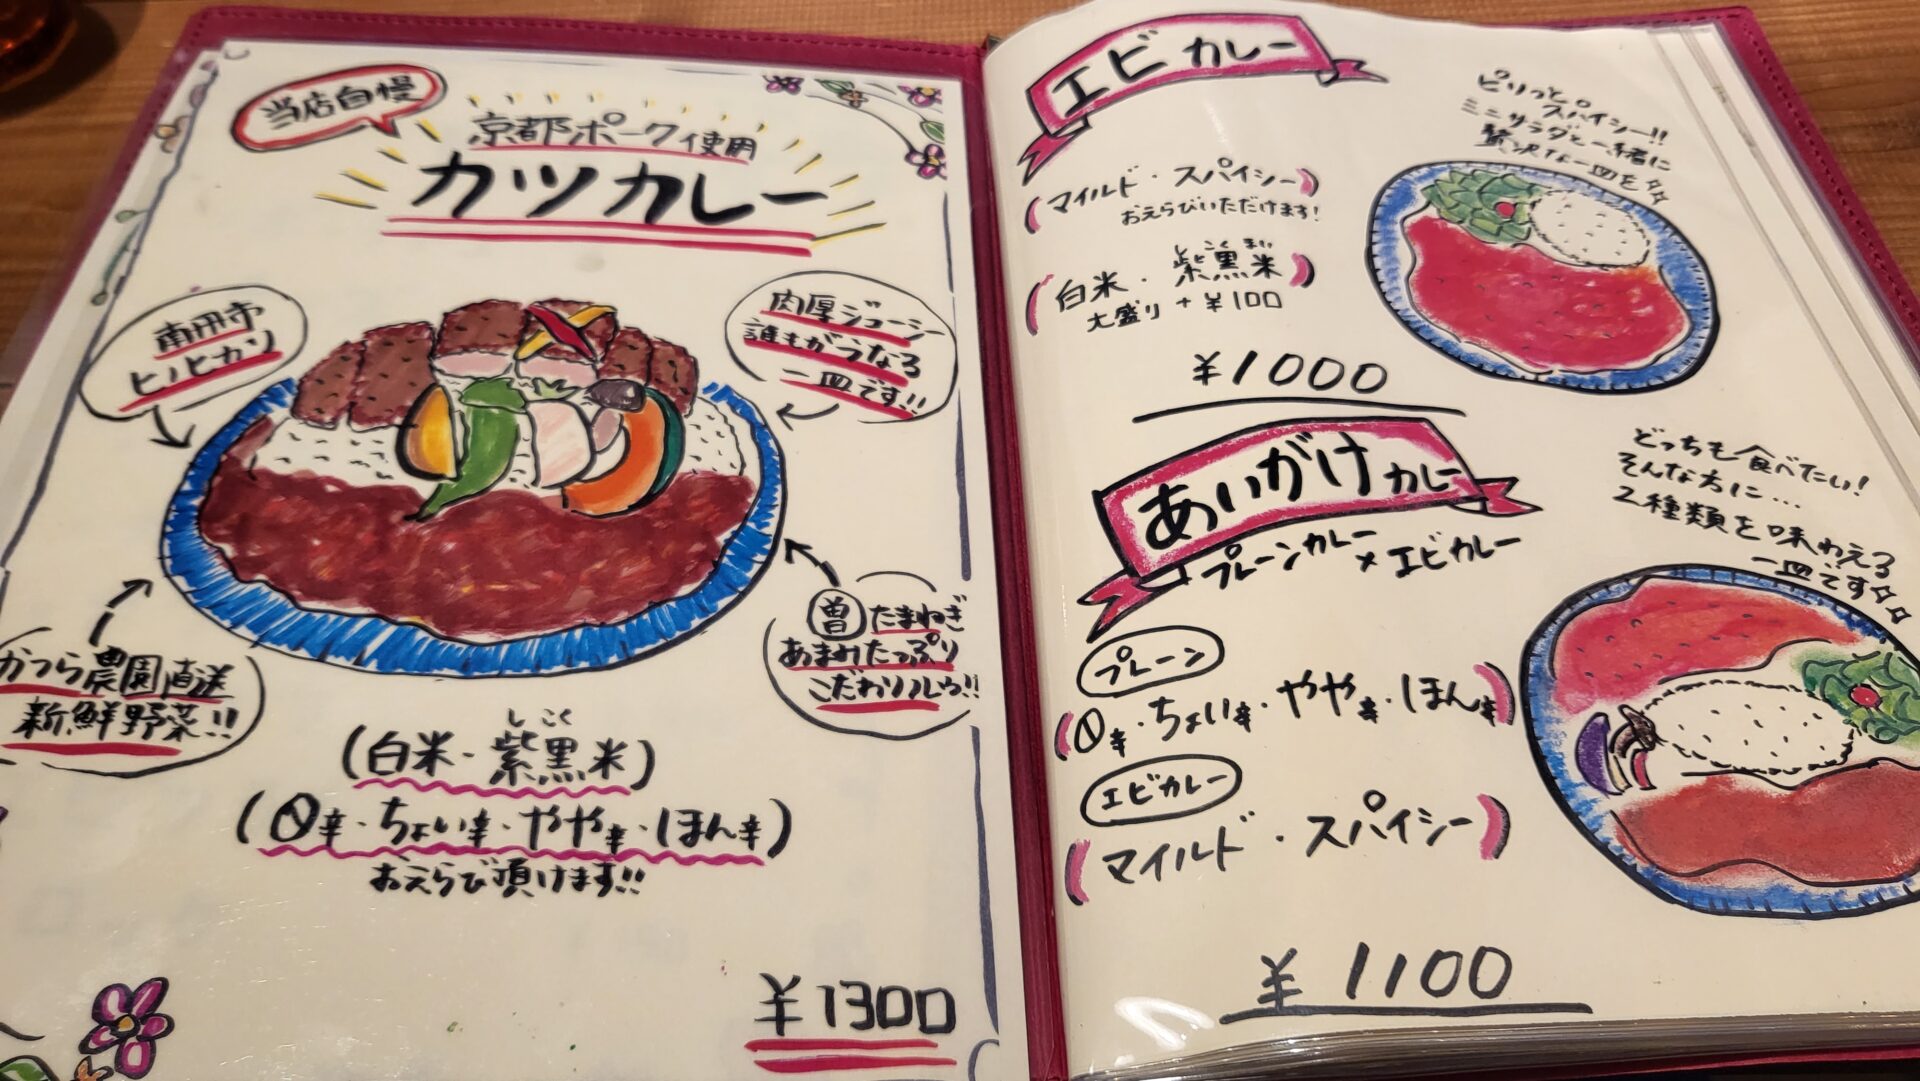 当店自慢
京都ポーク使用
カツカレー
南丹市
ヒノヒカリ
肉厚ジューシー
誰もがうなる
一皿です!!
かつら農園直送
新鮮野菜!!
たまねぎ
あまみたっぷり
こだわりルウ!!
しこく
(白米・紫黒米)
(0辛・ちょい辛・やや辛・ほん辛)
おえらび頂けます!!
¥1300
エビカレー
ピリっと
スパイシー!!
ミニサラダと一緒に
贅沢な一皿を
(マイルド・スパイシー)
おえらびいただけます!
しこくまい
(白米・紫黒米)
大盛り+¥100
¥1000
あいがけカレー
プレーンカレー×エビカレー
どっちも食べたい!
そんな方に…
2種類を味わえる
一皿です
プレーン
(0辛・ちょい辛・やや辛・ほん辛)
エビカレー
(マイルド・スパイシー)
¥1100